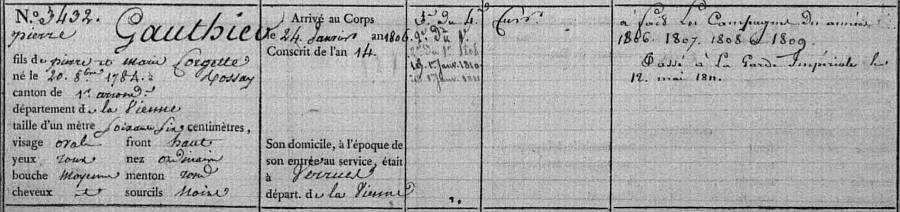 N.o 3432.
pierre Gauthier
fils de pierre et marie Corgette
né le 20. 8bre 1784. à Rossay
canton de 1er arrond.t
département de la Vienne
taille d'un mètre soixante six centimètres,
visage oval front haut
yeux roux nez ordinaire
bouche moyenne menton rond
cheveux et sourcils Noirs
Arrivé au Corps
le 24 Janvier an 1806.
Conscrit de l'an 14.
Son domicile, à l'époque de
son entrée au service, était
à Verrue
départ. de la Vienne
5.e du 4.
2.e du 1.er
a fait les Campagnes des années
1806. 1807. 1808 & 1809.
Passé à La Garde Impériale le
12. mai 1811.